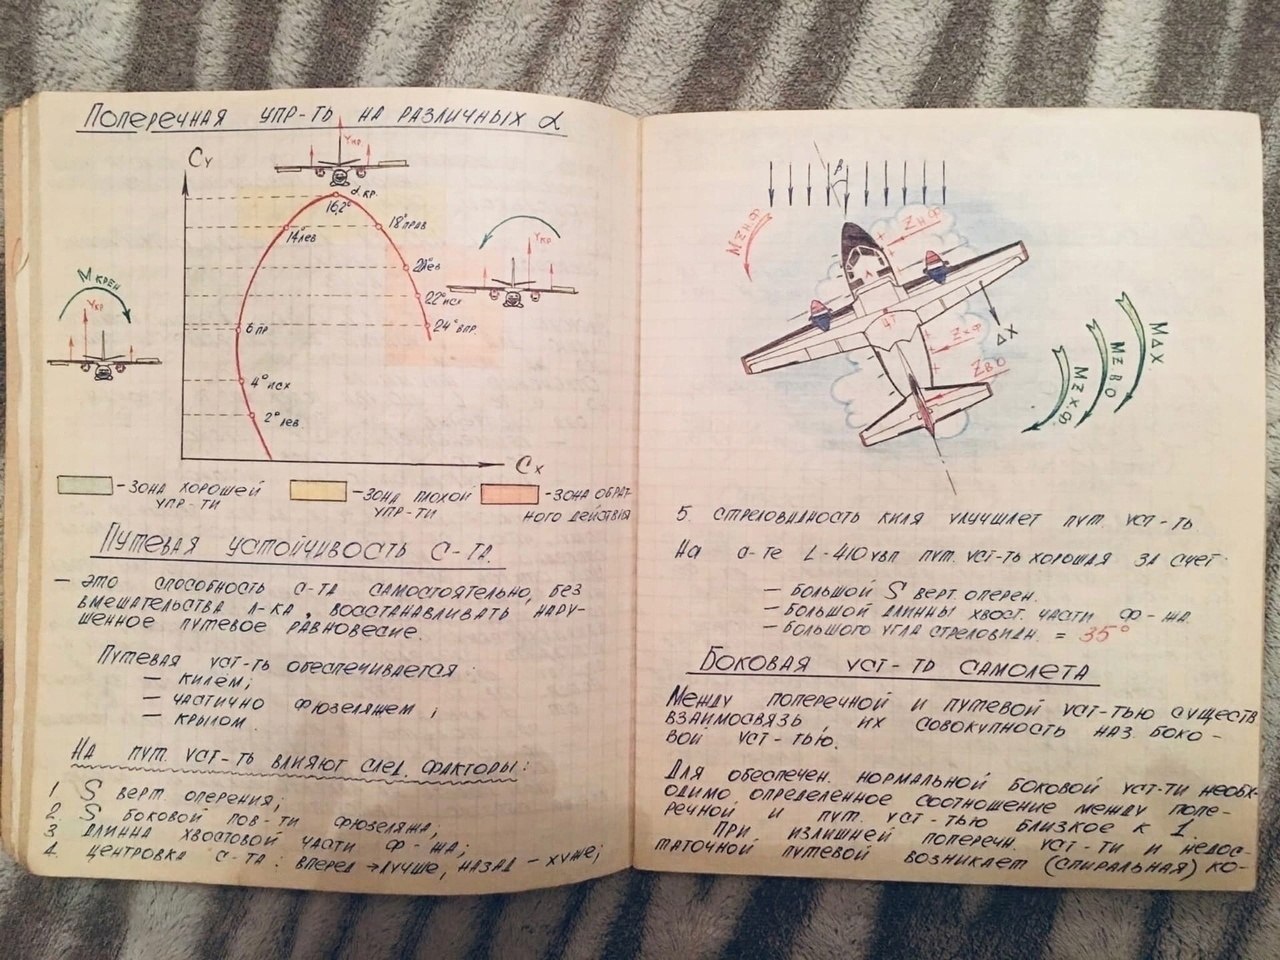 Поперечная упр-ть на различных α
Cy
Yкр
α кр.
16,2°
14° лев
18° прав
Yкр
М крен
Yкр
22° исх
6 пр
24° впр
4° исх
2° лев
Cx
- зона хорошей
упр-ти
- зона плохой
упр-ти
- зона обрат-
ного действия
Путевая устойчивость с-та
— это способность с-та самостоятельно, без
вмешательства л-ка, восстанавливать нару-
шенное путевое равновесие.
Путевая уст-ть обеспечивается:
— килем;
— частично фюзеляжем;
— крылом.
На пут. уст-ть влияют след. факторы:
1 S верт. оперения;
2. S боковой пов-ти фюзеляжа;
3 длинна хвостовой части ф-жа;
4. центровка с-та: вперед → лучше, назад — хуже;
β
Mzнф
Zнф
41
ΔX
Zхф
Zво
MΔX.
MZВО
MZХ.Ф.
5. стреловидность киля улучшает пут. уст-ть
На с-те L-410увп пут. уст-ть хорошая за счет:
— большой S верт. оперен.
— большой длинны хвост. части ф-жа
— большого угла стреловидн. = 35°
Боковая уст-ть самолета
Между поперечной и путевой уст-тью существ
взаимосвязь, их совокупность наз. боко-
вой уст-тью.
Для обеспечен. нормальной боковой уст-ти необх-
одимо определенное соотношение между попе-
речной и пут. уст-тью близкое к 1.
При излишней поперечн. уст-ти и недос-
таточной путевой возникает (спиральная) ко-